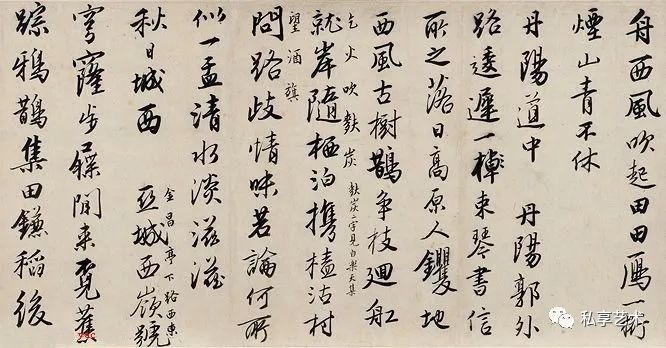 舟西風吹起田田鴈一
煙山青不休
丹陽道中 丹陽郭外
路逶遲一棹束琴書信
所之落日高原人钁地
西風古樹鵲爭枝廻舡
乞火吹麩炭 麩炭二字見白樂天集
就岸隨栖泊攜榼沽村
望酒旗
問路歧情味若論何所
似一盂清水淡滋滋
秋日城西 金昌亭下路西東 亞城西嶺號
穹窿步屧閒來覓舊
蹤鴉鵲集田鎌稻後
私享艺术